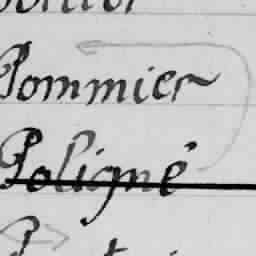 Pommier
Poligné